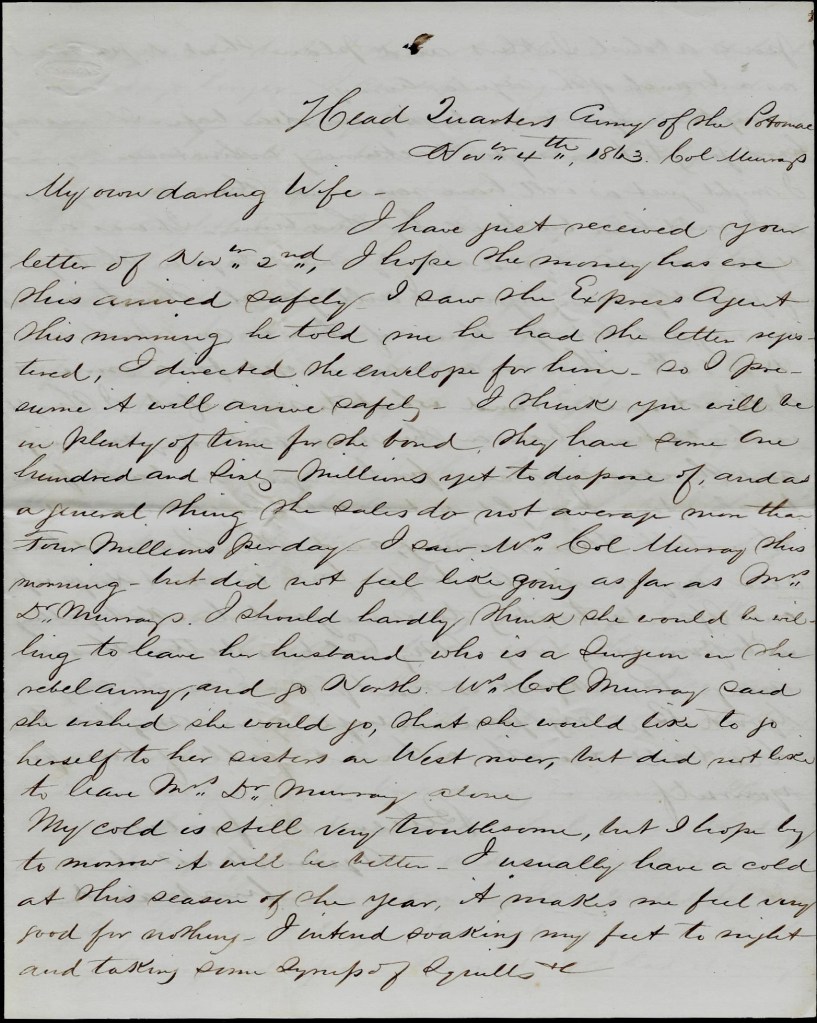 Head Quarters Army of the Potomac
Nov.er 4th, 1863. Col Murrays
My own darling Wife -
I have just received your
letter of Nov.er 2nd, I hope the money has ere
this arrived safely - I saw the Express Agent
this morning he told me he had the letter regis-
tered, I directed the envelope for him - so I pre-
sume it will arrive safely - I think you will be
in plenty of time for the bond, they have some One
hundred and Sixty - Millions yet to dispose of, and as
a general thing the sales do not average more than
Four Millions per day I saw Mrs. Col Murray this
morning - but did not feel like going as far as Mrs.
Dr. Murrays. I should hardly think she would be wil-
ling to leave her husband who is a Surgeon in the
rebel army, and go North. Mrs. Col Murray said
she wished she would go, that she would like to go
herself to her sisters on West river, but did not like
to leave Mrs. Dr. Murray alone
My cold is still very troublesome, but I hope by
to morrow it will be better - I usually have a cold
at this season of the year, it makes me feel very
good for nothing - I intend soaking my feet to night
and taking some Syrup of Squills &c